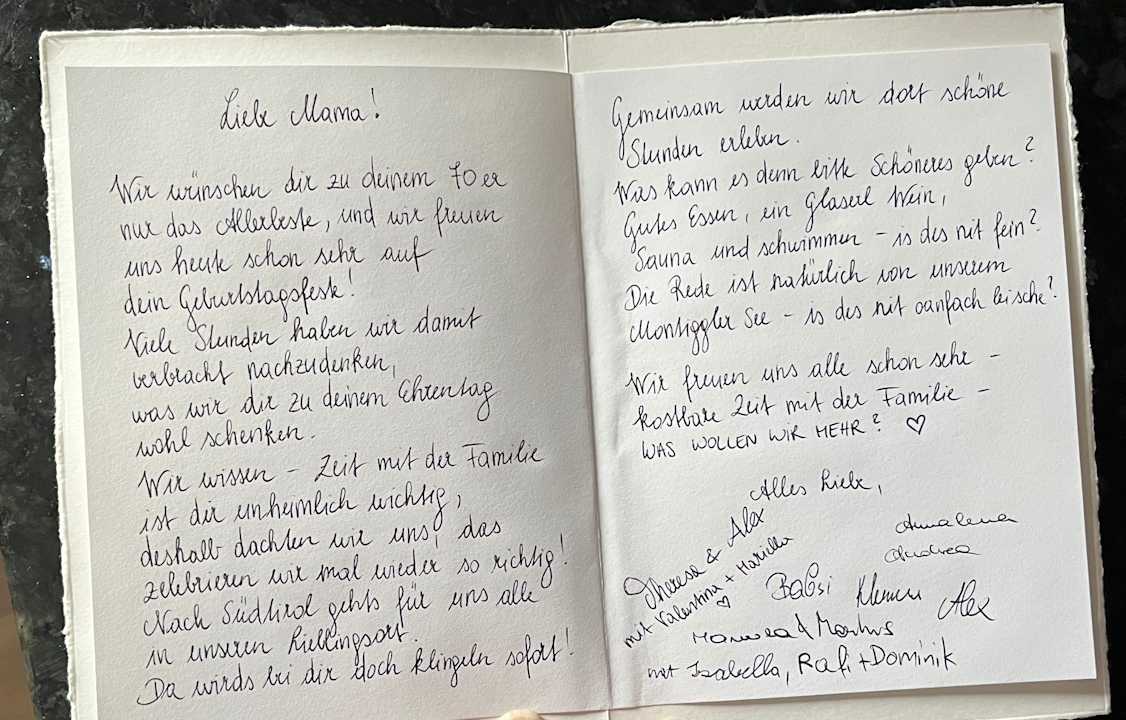 Liebe Mama!
Wir wünschen dir zu deinem 70er
nur das Allerbeste, und wir freuen
uns heute schon sehr auf
dein Geburtstagsfeste!
Viele Stunden haben wir damit
verbracht nachzudenken,
was wir dir zu deinem Ehrentag
wohl schenken.
Wir wissen - Zeit mit der Familie
ist dir unheimlich wichtig,
deshalb dachten wir uns, das
zelebrieren wir mal wieder so richtig!
Nach Südtirol gehts für uns alle
in unseren Lieblingsort.
Da wirds bei dir doch klingeln sofort!
Gemeinsam werden wir dort schöne
Stunden erleben.
Was kann es denn bitte Schöneres geben?
Gutes Essen, ein Glaserl Wein,
Sauna und schwimmen - is des nit fein?
Die Rede ist natürlich von unserem
Montiggler See - is des nit oanfach leische?
Wir freuen uns alle schon sehr -
kostbare Zeit mit der Familie -
WAS WOLLEN WIR MEHR? ♡
Alles Liebe,
Theresa & Alex
mit Valentina + Mariella
♡
Annalena
Andrea
Babsi
Klemens
Alex
Manuela & Markus
mit Isabella, Rafi + Dominik